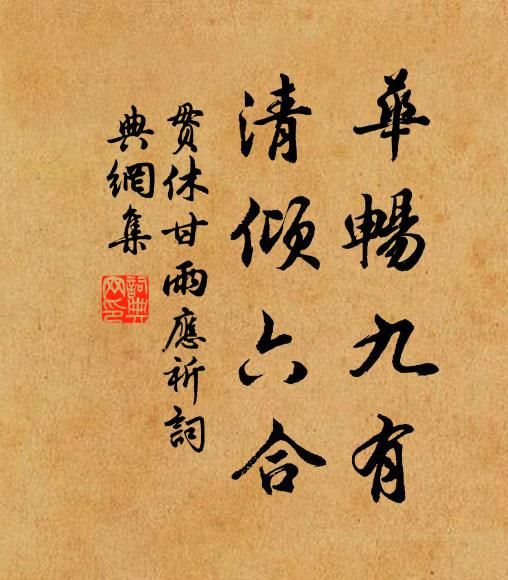 華暢九有
清傾六合
貫休甘雨應祈詞
典網集
詞典
网印